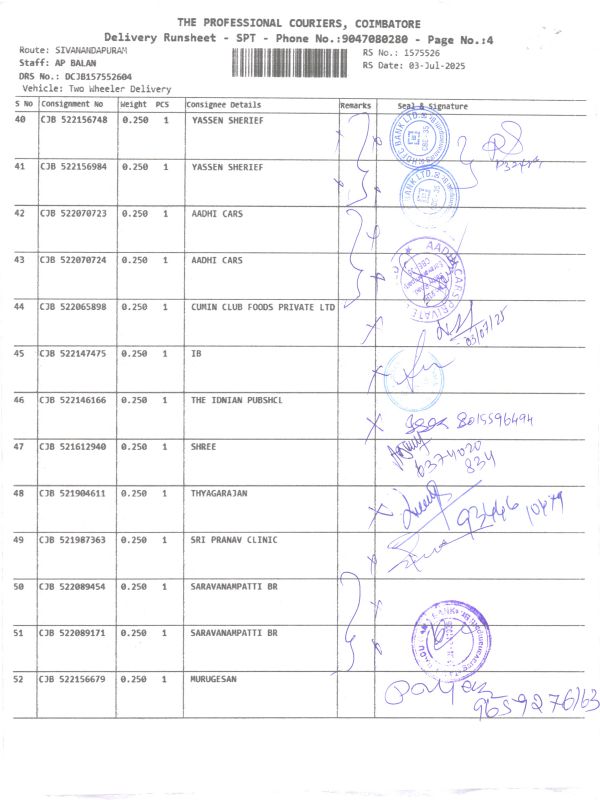 THE PROFESSIONAL COURIERS, COIMBATORE
Delivery Runsheet - SPT - Phone No.:9047080280 - Page No.:4
Route: SIVANANDAPURAM
RS No.: 1575526
Staff: AP BALAN
RS Date: 03-Jul-2025
DRS No.: DCJB157552604
Vehicle: Two Wheeler Delivery
S No Consignment No Weight PCS Consignee Details Remarks Seal & Signature
40 CJB 522156748 0.250 1 YASSEN SHERIEF
HDFC BANK LTD.
41 CJB 522156984 0.250 1 YASSEN SHERIEF
BANK LTD.
42 CJB 522070723 0.250 1 AADHI CARS
43 CJB 522070724 0.250 1 AADHI CARS
AADHI CARS PRIVATE
44 CJB 522065898 0.250 1 CUMIN CLUB FOODS PRIVATE LTD
03/07/25
45 CJB 522147475 0.250 1 IB
46 CJB 522146166 0.250 1 THE IDNIAN PUBSHCL
8015596494
47 CJB 521612940 0.250 1 SHREE
6374020
834
48 CJB 521904611 0.250 1 THYAGARAJAN
93446 10479
49 CJB 521987363 0.250 1 SRI PRANAV CLINIC
50 CJB 522089454 0.250 1 SARAVANAMPATTI BR
51 CJB 522089171 0.250 1 SARAVANAMPATTI BR
52 CJB 522156679 0.250 1 MURUGESAN
9659276163